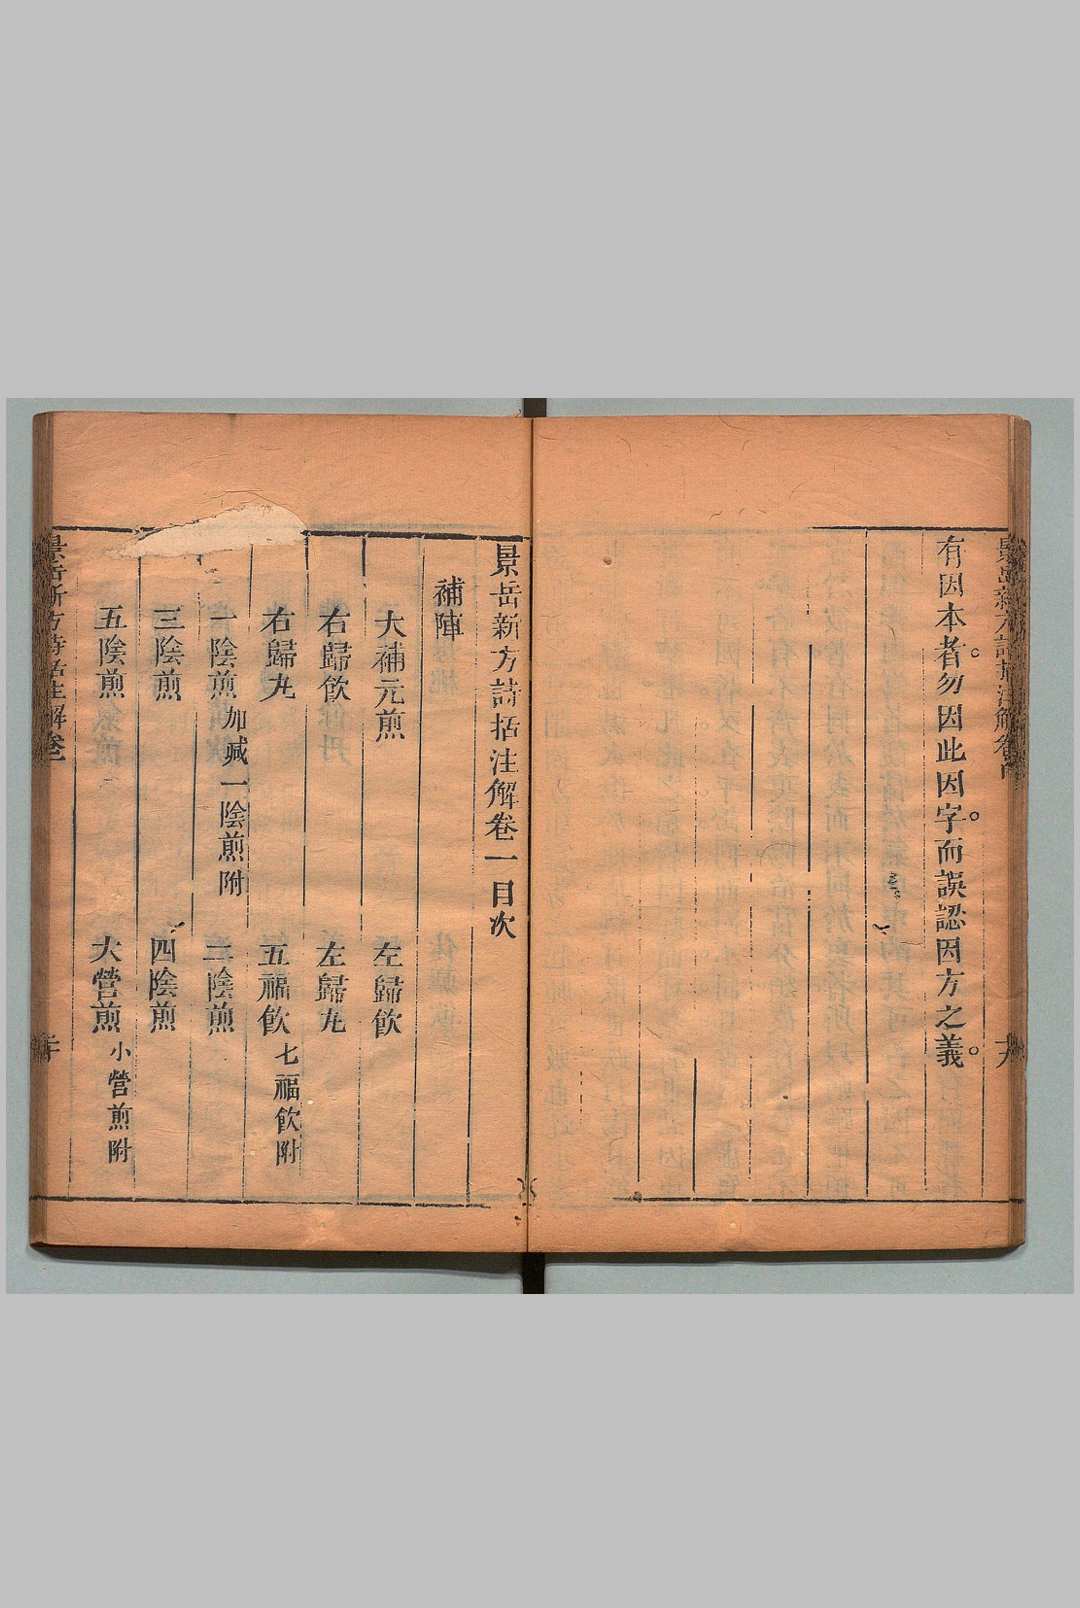 有因本者勿因此因字而誤認因方之義
景岳新方詩括注解卷一目次
補陣
大補元煎 左歸飲
右歸飲 左歸丸
右歸丸 五福飲 七福飲附
一陰煎 加減一陰煎附 二陰煎
三陰煎 四陰煎
五陰煎 大營煎 小營煎附
景岳新方詩括注解卷